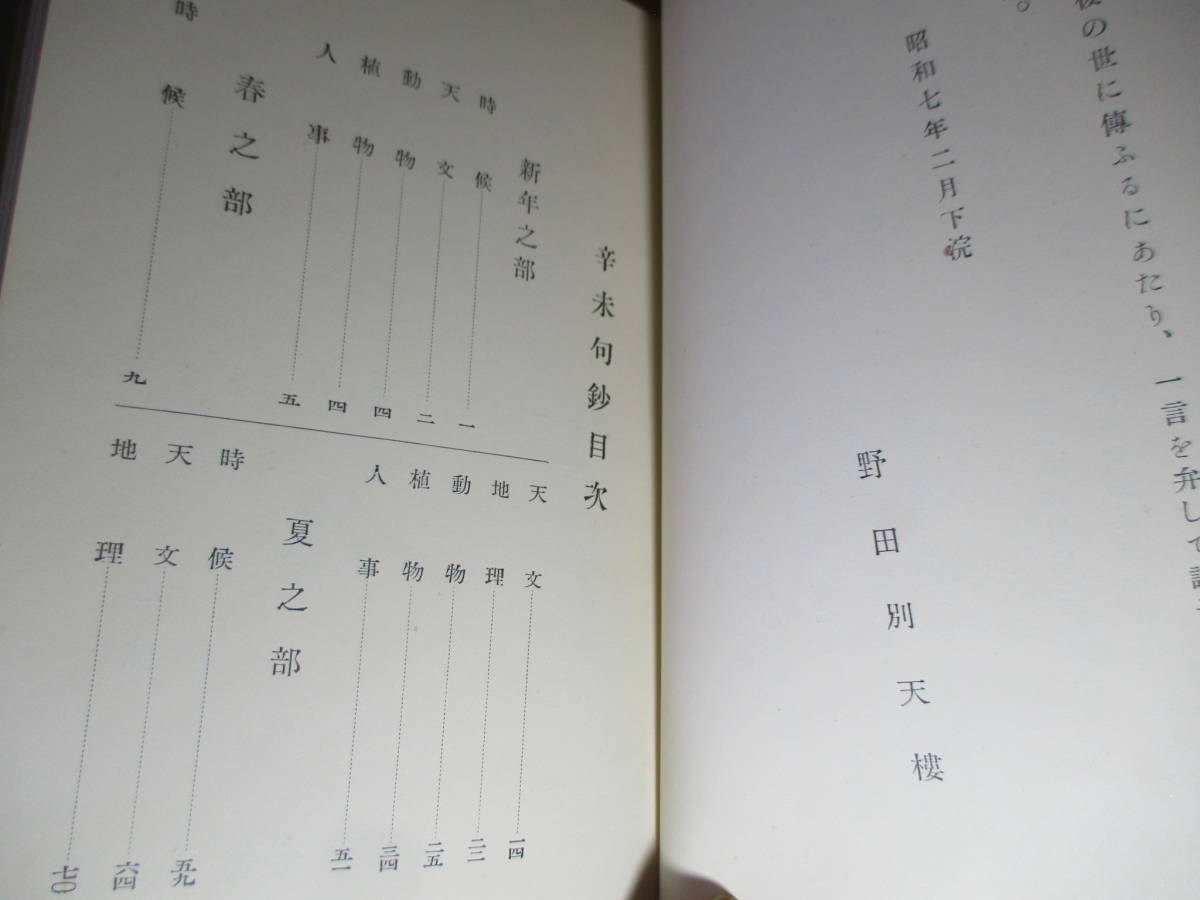 後の世に傳ふるにあたり、一言を弁して
。
昭和七年二月下浣
野田別天樓
辛未句鈔目次
新年之部
時候 一
天文 二
動物 四
植物 四
人事 五
春之部
時候 九
天文 一四
地理 二二
動物 二五
植物 三四
人事 五一
夏之部
時候 五九
天文 六四
地理 七〇